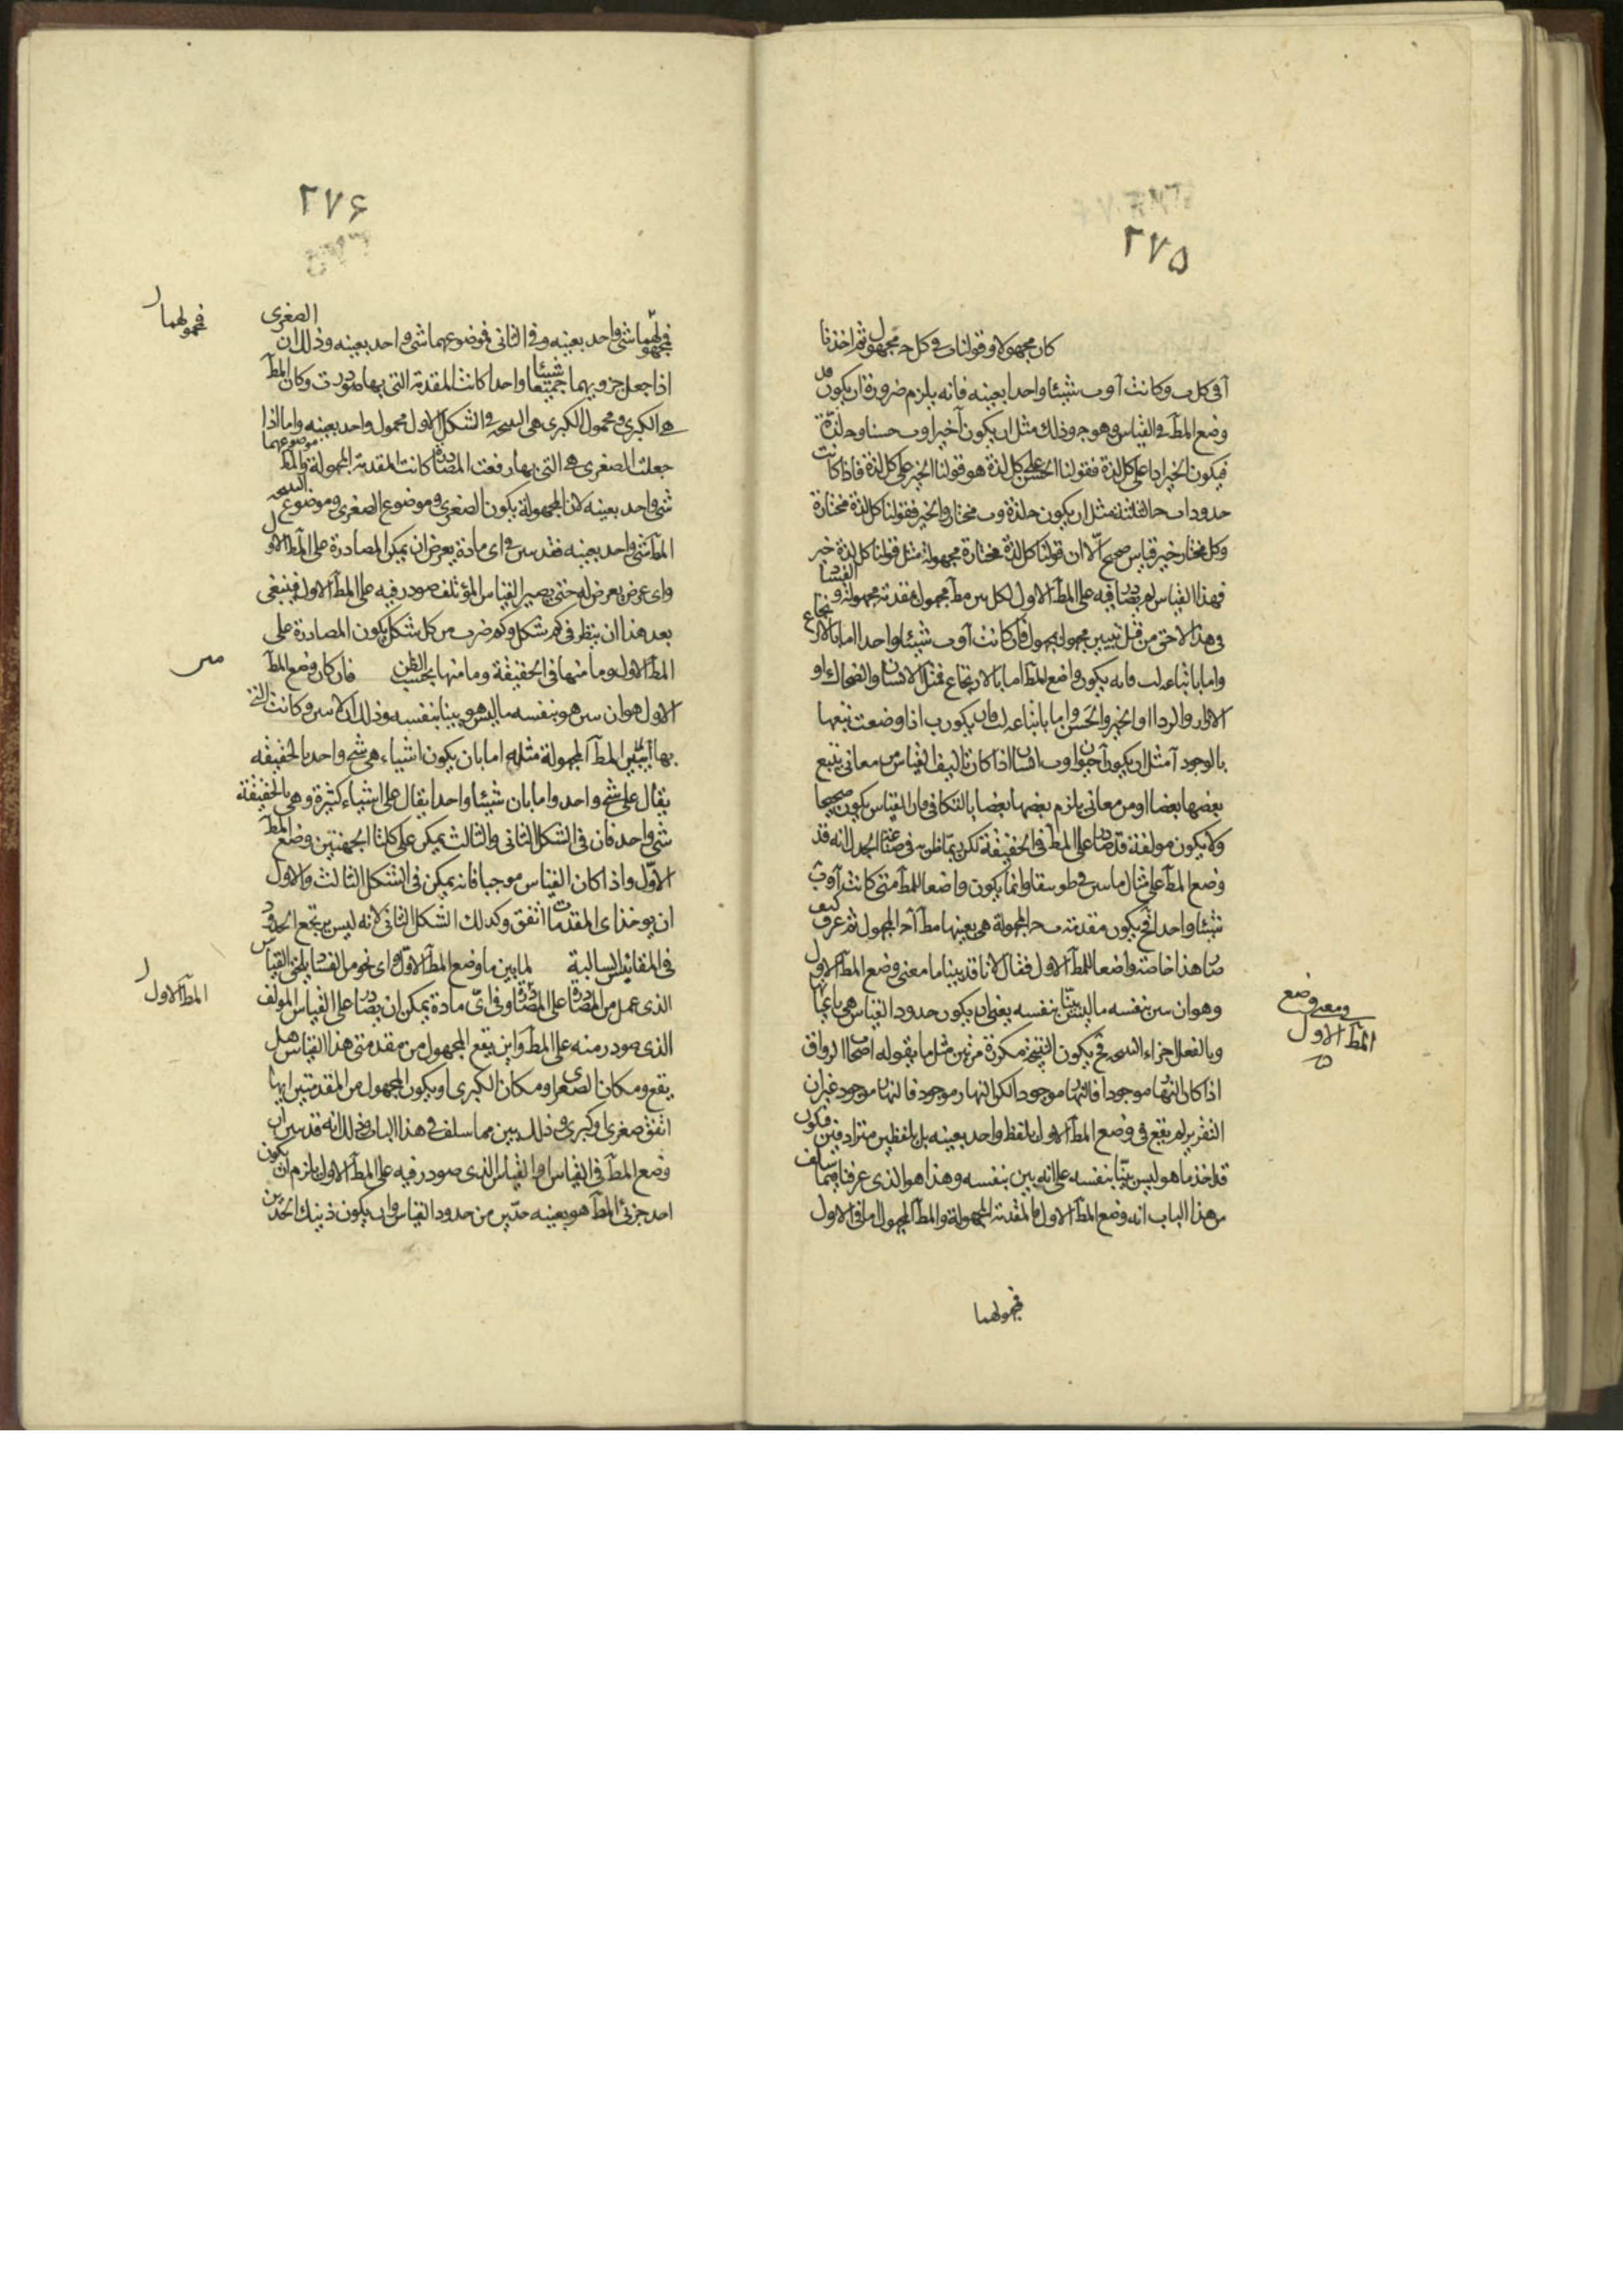 ٢٧۵
كان مجهولا وقولنا ب فى كل حـ مجهول ثم اخذنا
آ فى كل ب وكانت آ و ب شيئا واحدا بعينه فانه يلزم ضرورة ان يكون قد
وضع المط فى القياس وهو وذلك مثل ان يكون آ خيرا و ب حسنا و حـ لذة
فيكون الخير اذا على كل لذة فقولنا الحسن على كل لذة هو قولنا الخير على كل لذة فاذا كانت
حدود ا ب حـ الثلثة مثل ان يكون حـ لذة و ب مختار و آ خير فقولنا كل لذة مختارة
وكل مختار خير قياس صحيح الا ان قولنا كل لذة مختارة مجهولة مثل قولنا كل لذة خير
فهذا القياس لم يصادر فيه على المط الاول لكن بين مط مجهول بمقدمة مجهولة و الفساد
فى هذا لاحق من قبل تبيين مجهول بمجهول فان كانت آ و ب شيئا واحدا اما بالارتجاع
واما باتباع لـ ب فانه يكون واضع المط اما بالارتجاع فمثل الانسان والضحاك او
الازار والردا او الخير والحسن واما باتباع لـ ب فان يكون ب اذا وضعت تبعها
بالوجود آ مثل ان يكون آ حيوان و ب انسان اذا كان تاليف القياس من معانى يتبع
بعضها بعضا او من معانى يلزم بعضها بعضا بالتكافى فان القياس يكون صحيحا
ولا يكون مولفه قد صادر على المط فى الحقيقة لكن ربما ظن به فى صناعة الجدل انه قد
وضع المط على مثال ما بين فى طوبيقا وانما يكون واضعا للمط متى كانت آ و ب
شيئا واحدا فح يكون مقدمة ب حـ المجهولة هى بعينها مط آ حـ المجهول ثم عرف كيف
صار هذا خاصة واضعا للمط الاول فقال لانا قد بينا ما معنى وضع المط الاول
وهو ان يبين بنفسه ما ليس بينا بنفسه يعنى ان يكون حدود القياس هى باعيانها
وبالفعل اجزاء النتيجه فح يكون النتيجة مكررة مرتين مثل ما يقوله اصحاب الرواق
اذا كان النهار موجودا فالنهار موجود لكن النهار موجود فالنهار موجود غير ان
التقرير لم يقع فى وضع المط الاول بلفظ واحد بعينه بل بلفظين مترادفين فيكون
قد اخذ ما هو ليس بينا بنفسه على انه بين بنفسه وهذا هو الذى عرفنا فيما سلف
من هذا الباب انه وضع المط الاول فالمقدمة المجهولة والمط المجهول اما فى الاول
فمحمولهما
ومعنى وضع
المط الاول
٢٧۶
فمحمولهما شى واحد بعينه وفى الثانى فموضوعهما شى واحد بعينه وذلك ان الصغرى
اذا جعل جزويهما جميعا شيئا واحدا كانت المقدمة التى بها صودرت وكان المط
هى الكبرى ومحمول الكبرى هى النتيجه فى الشكل الاول محمول واحد بعينه واما اذا
جعلت الصغرى هى التى بها رفعت المصادرة كانت المقدمة المجهولة والمط موضوعهما
شى واحد بعينه لان المجهولة يكون الصغرى وموضوع الصغرى وموضوع النتيجه
المط شى واحد بعينه فقد بين فى اى مادة يعرض ان يمكن المصادرة على المط الاول
واى عرض يعرض له حتى يصير القياس المؤتلف صودر فيه على المط الاول فينبغى
بعد هذا ان ينظر فى كم شكل وكم ضرب من كل شكل يكون المصادرة على
المط الاول وما منها فى الحقيقة وما منها بحسب الظن فان كان وضع المط
الاول هو ان يبين هو بنفسه ما ليس هو بينا بنفسه وذلك ان لا يبين وكانت التى
بها يتبين المط المجهولة مثله اما بان يكون اشياء هى شى واحد بالحقيقه
يقال على شى واحد واما بان شيئا واحدا يقال على اشياء كثيرة وهى بالحقيقة
شى واحد فان فى الشكل الثانى والثالث يمكن على كلتا الجهتين وضع المط
الاول واذا كان القياس موجبا فانه يمكن فى الشكل الثالث والاول
ان يوخذ اى المقدمات اتفق وكذلك الشكل الثانى لانه ليس يرتجع الحدود
فى المقائيس السالبة لما بين ما وضع المط الاول واى نحو من الفساد يلحق القياس
الذى عمل من المصادرة على المصادرة وفى اى مادة يمكن ان يصادر على القياس المولف
الذى صودر منه على المط واين يقع المجهول من مقدمتى هذا القياس هل
يقع ومكان الصغرى او مكان الكبرى او يكون المجهول من المقدمتين ايها
اتفق صغرى او كبرى وذلك يبين مما سلف فى هذا الباب وذلك انه قد بين ان
وضع المط فى القياس او القياس الذى صودر فيه على المط الاول يلزم ان يكون
احد جزئى المط هو بعينه حدين من حدود القياس وان يكون ذينك الحدين
فمحمولهما
المط الاول